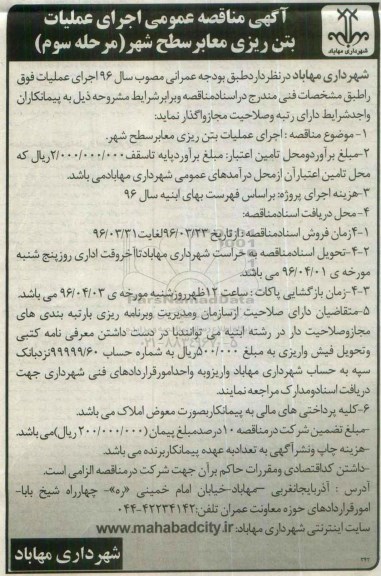 آگهی مناقصه عمومی اجرای عملیات
بتن ریزی معابر سطح شهر (مرحله سوم)
شهرداری مهاباد
شهرداری مهاباد در نظر دارد طبق بودجه عمرانی مصوب سال ۹۶ اجرای عملیات فوق
را طبق مشخصات فنی مندرج در اسناد مناقصه و برابر شرایط مشروحه ذیل به پیمانکاران
واجد شرایط دارای رتبه و صلاحیت مجاز واگذار نماید:
۱-موضوع مناقصه : اجرای عملیات بتن ریزی معابر سطح شهر.
۲-مبلغ برآورد و محل تامین اعتبار: مبلغ برآورد پایه تا سقف ۲/۰۰۰/۰۰۰/۰۰۰ ریال که
محل تامین اعتبار آن از محل درآمدهای عمومی شهرداری مهاباد می باشد.
۳-هزینه اجرای پروژه: بر اساس فهرست بهای ابنیه سال ۹۶
۴- محل دریافت اسناد مناقصه:
۴-۱زمان فروش اسناد مناقصه : از تاریخ ۹۶/۰۳/۲۳ لغایت ۹۶/۰۳/۳۱
۴-۲-تحویل اسناد مناقصه به حراست شهرداری مهاباد تا آخر وقت اداری روز پنج شنبه
مورخه ی ۹۶/۰۴/۰۱ می باشد.
۴-۳-زمان بازگشایی پاکات : ساعت ۱۲ ظهر روز شنبه مورخه ی ۹۶/۰۴/۰۳ می باشد.
۵-متقاضیان دارای صلاحیت از سازمان و مدیریت و برنامه ریزی با رتبه بندی های
مجاز و صلاحیت دار در رشته ابنیه می توانند با در دست داشتن معرفی نامه کتبی
و تحویل فیش واریزی به مبلغ ۵۰۰/۰۰۰ ریال به شماره حساب ۹۹۹۹۹/۶۰ نزد بانک
سپه به حساب شهرداری مهاباد واریز و به واحد امور قراردادهای فنی شهرداری جهت
دریافت اسناد و مدارک مراجعه نمایند.
۶-کلیه پرداختی های مالی به پیمانکار بصورت معوض املاک می باشد.
-مبلغ تضمین شرکت در مناقصه ۱۰ درصد مبلغ پیمان (۲۰۰/۰۰۰/۰۰۰ ریال) می باشد.
-هزینه چاپ و نشر آگهی به تعداد به عهده پیمانکار برنده می باشد.
-داشتن کد اقتصادی و مقررات حاکم بر آن جهت شرکت در مناقصه الزامی است.
آدرس : آذربایجانغربی –مهاباد-خیابان امام خمینی «ره»- چهارراه شیخ بابا-
امور قراردادهای حوزه معاونت عمران تلفن:۴۲۲۳۴۱۴۲-۰۴۴
سایت اینترنتی شهرداری مهاباد: www.mahabadcity.ir
شهرداری مهاباد